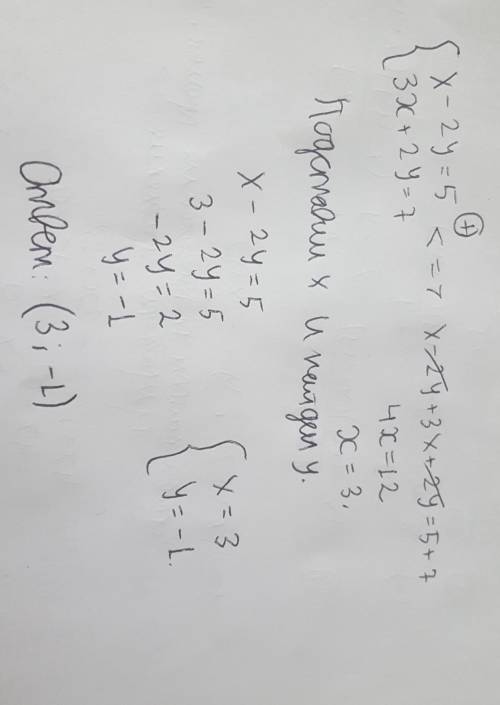 { x - 2y = 5 (+) <=> x - 2y + 3x + 2y = 5 + 7
{ 3x + 2y = 7
4x = 12
x = 3.
Подставим x и найдем y.
x - 2y = 5
3 - 2y = 5
-2y = 2
y = -1
{ x = 3
{ y = -1.
Ответ: (3; -1)